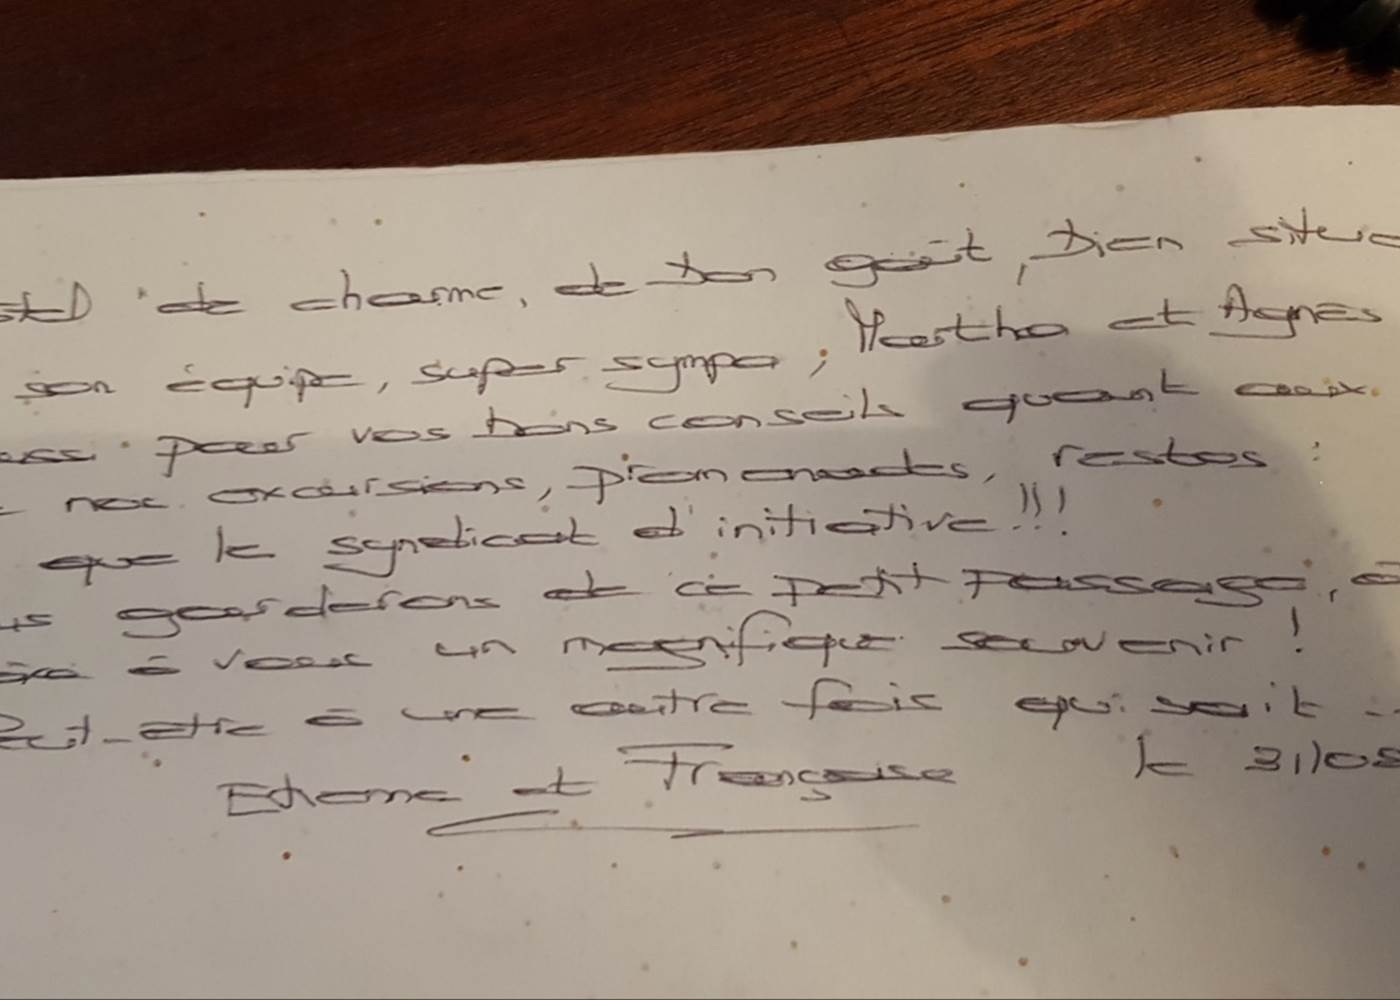 de charme, de bon goût, bien situé
son équipe, super sympa ; Martha et Agnès
pour vos bons conseils quant aux
nos excursions, promenades, restos :
que le syndicat d'initiative !!!
garderons de ce petit passage,
à vous un magnifique souvenir !
Peut-être à une autre fois qui sait
Etienne et Françoise le 31/05